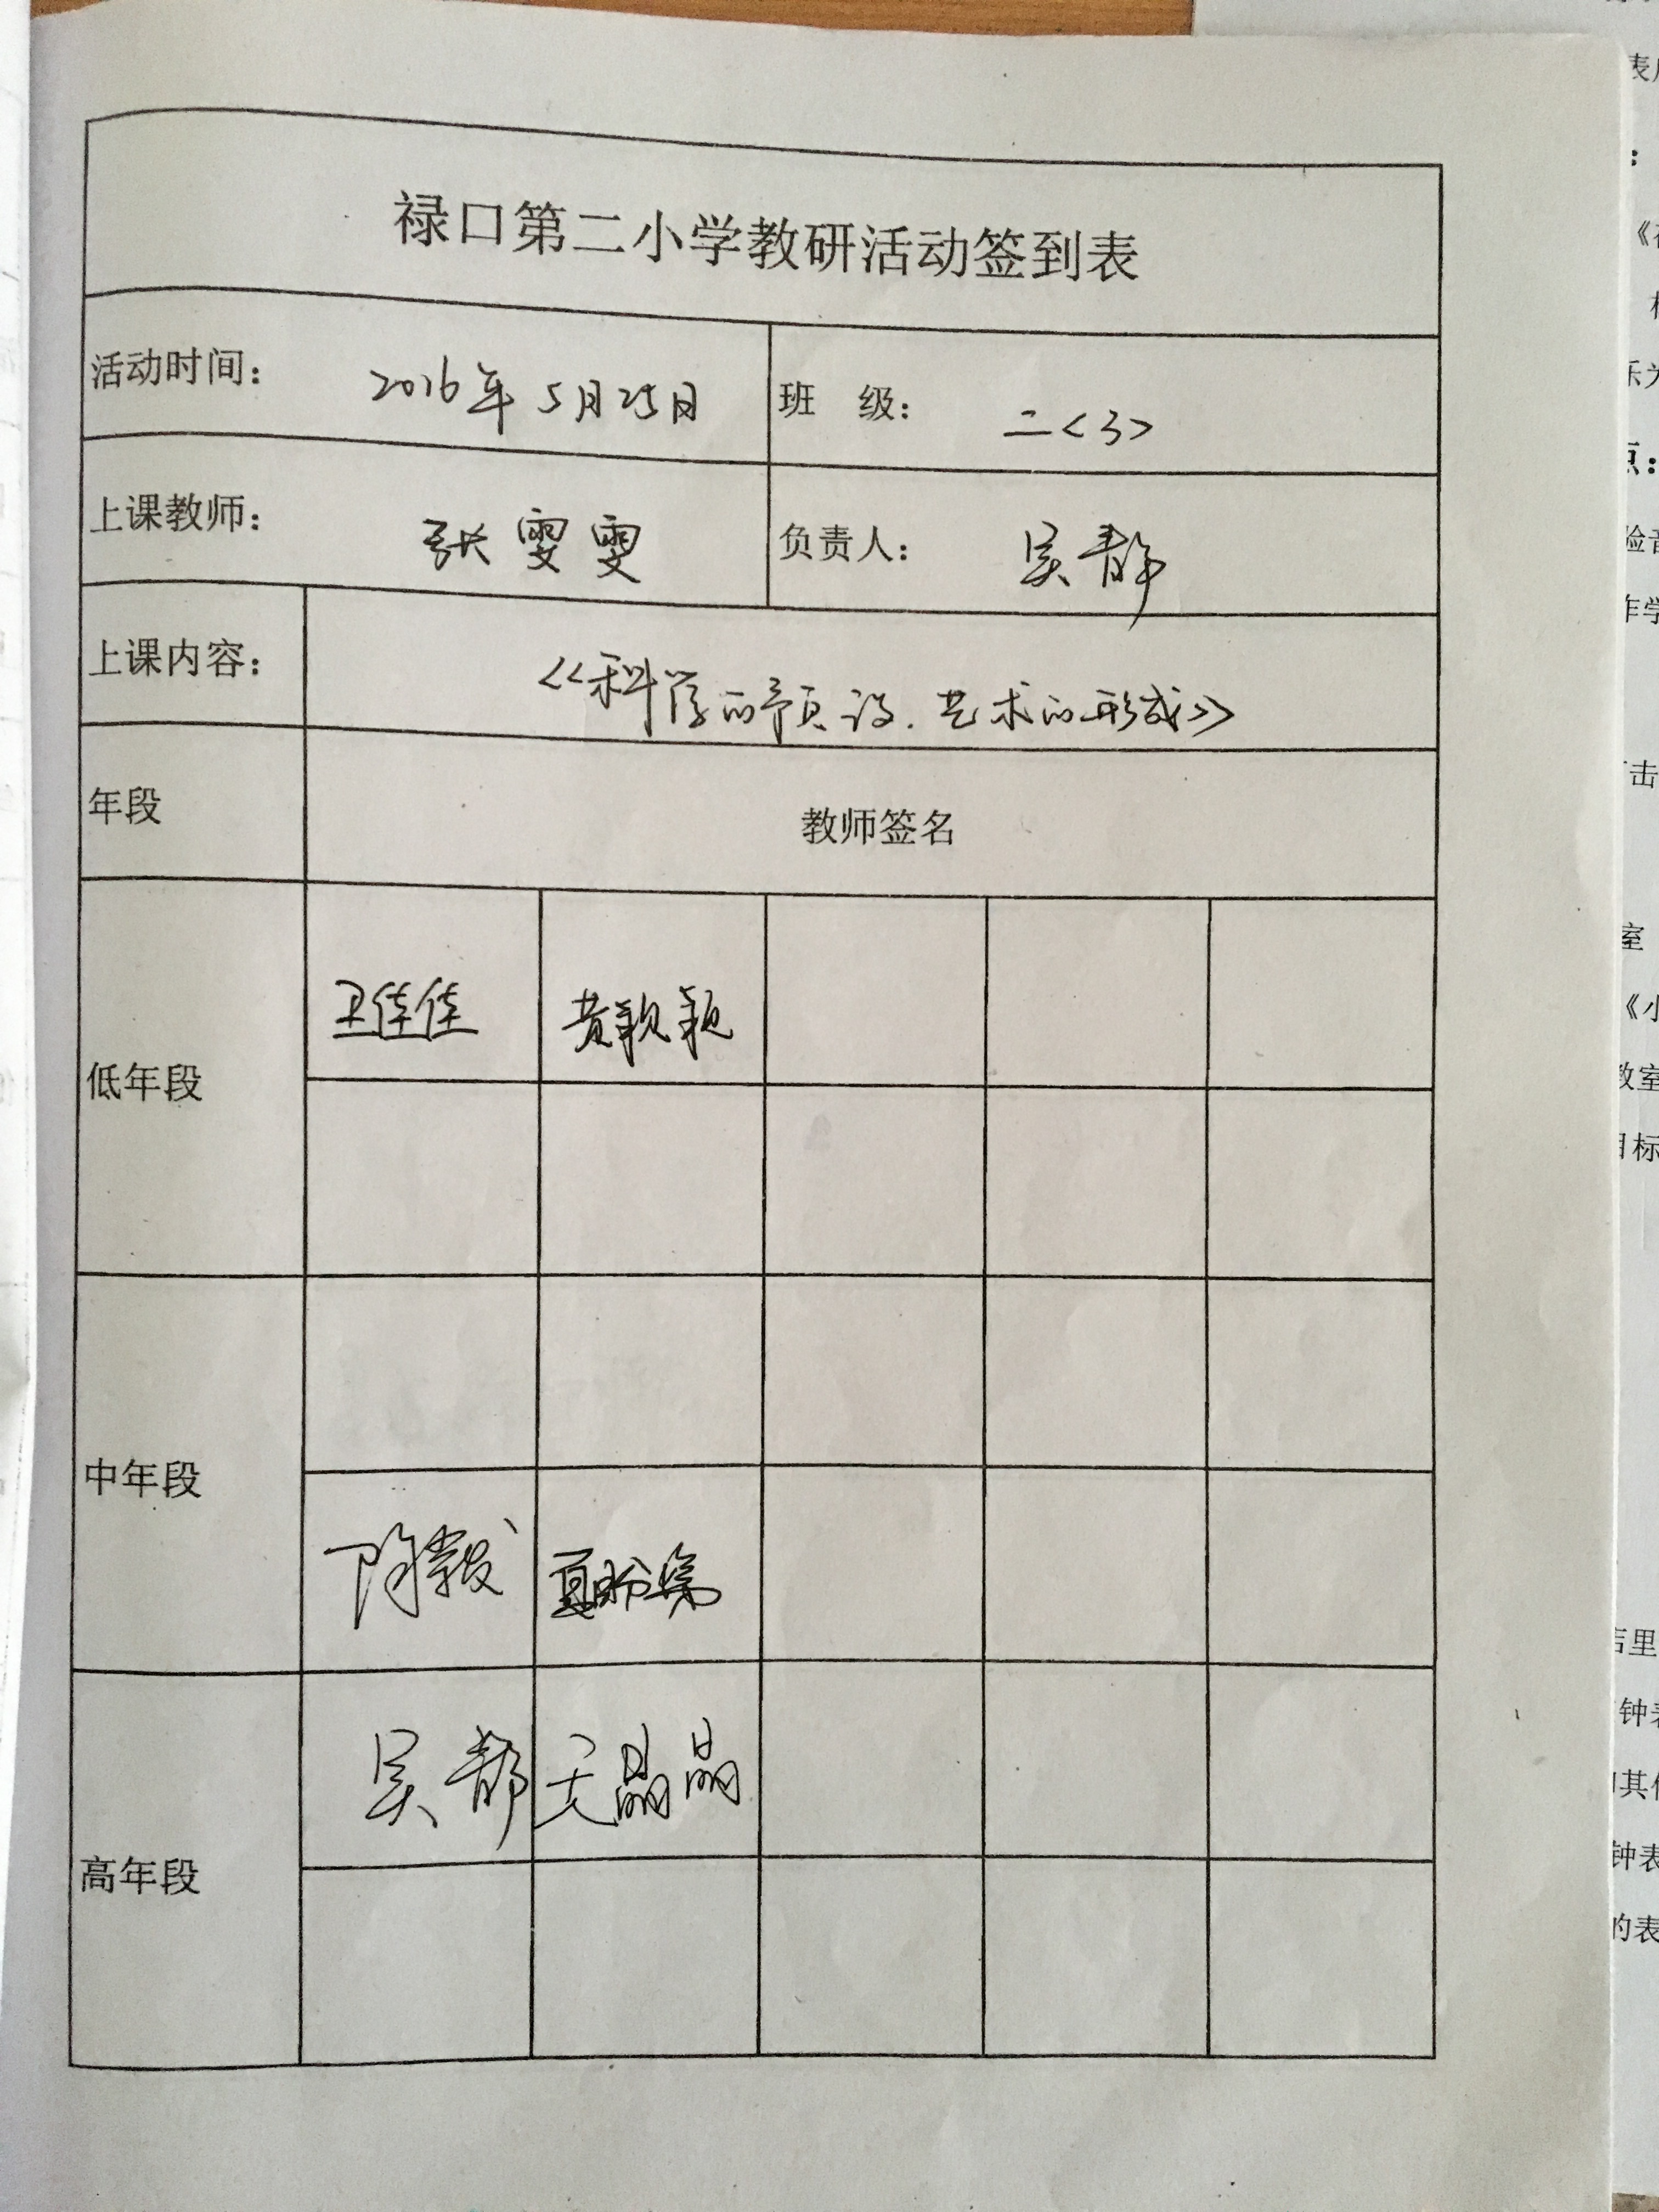 禄口第二小学教研活动签到表
活动时间： 2016年5月25日 班 级： 二<3>
上课教师： 张雯雯 负责人： 吴静
上课内容： 《科学的预设.艺术的形成》
年段 教师签名
卫佳佳 黄颖颖
低年段
中年段
夏盼
吴静 晶晶
高年段
表
：
《
点：
验音
作学
击
室
《小
教室
目标
店里
钟表
其他
钟表
的表